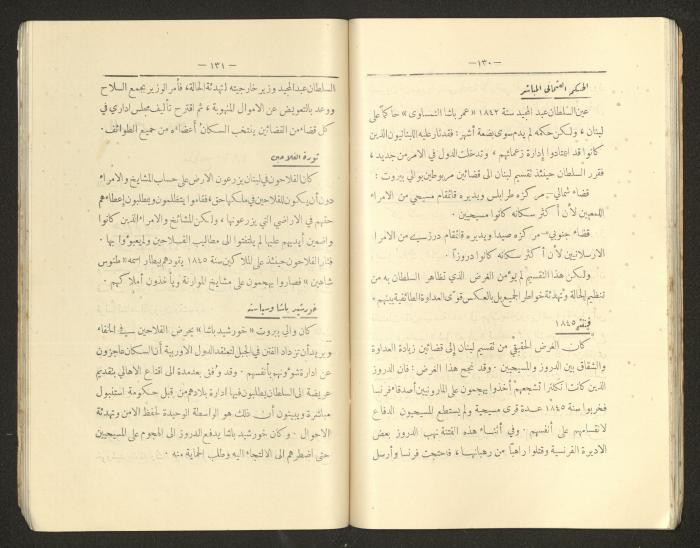 — ١٣٠ —
الحكم العثماني المباشر
عين السلطان عبد المجيد سنة ١٨٤٢ « عمر باشا النمساوى » حاكماً على
لبنان ، ولكن حكمه لم يدم سوى بضعة أشهر : فقد ثار عليه اللبنانيون الذين
كانوا قد اعتادوا إدارة زعمائهم ، وتدخلت الدول في الامر من جديد ،
فقرر السلطان حينئذ تقسيم لبنان الى قضائين مربوطين بوالي بيروت :
قضاء شمالي – مركزه طرابلس ويديره قائمقام مسيحي من الامراء
اللمعيين لأن أكثر سكانه كانوا مسيحيين .
قضاء جنوبي – مركزه صيدا ويديره قائمقام درزي من الامرا
الارسلانيين لأن أكثر سكانه كانوا دروزاً .
ولكن هذا التقسيم لم يؤمن الغرض الذي تظاهر السلطان به من
تنظيم الحالة وتهدئة خواطر الجميع بل بالعكس قوّى العداوة الطائفية بينهم .
فتنة ١٨٤٥
كان الغرض الحقيقي من تقسيم لبنان إلى قضائين زيادة العداوة
والشقاق بين الدروز والمسيحيين . وقد نجح هذا الغرض : فان الدروز
الذين كانت انكلترا تشجعهم أخذوا يهجمون على المارونيين أصدقاء فرنسا
فخربوا سنة ١٨٤٥ عدة قرى مسيحية ولم يستطع المسيحيون الدفاع
لانقسامهم على أنفسهم . وفي أثناء هذه الفتنة نهب الدروز بعض
الاديرة الفرنسية وقتلوا راهباً من رهبانها ، فاحتجت فرنسا وأرسل
— ١٣١ —
السلطان عبد المجيد وزير خارجيته لتهدئة الحالة ، فأمر الوزير بجمع السلاح
ووعد بالتعويض عن الاموال المنهوبة ، ثم اقترح تأليف مجلس اداري في
كل قضاء من القضائين ينتخب السكان أعضاءه من جميع الطوائف .
ثورة الفلاحين
كان الفلاحون في لبنان يزرعون الارض على حساب المشايخ والامراء
دون أن يكون للفلاحين في ملكها حق ، فقاموا يتظلمون ويطلبون إعطاءهم
حقهم في الاراضي التي يزرعونها ، ولكن المشائخ والامراء الذين كانوا
واضعين أيديهم عليها لم يلتفتوا الى مطاليب الفلاحين ولم يعبؤوا بها .
فثار الفلاحون حينئذ على الملاكين سنة ١٨٤٥ يقودهم بيطار اسمه « طنوس
شاهين » فصاروا يهجمون على مشايخ الموارنة ويأخذون أملاكهم .
خورشيد باشا وسياسته
كان والي بيروت « خورشيد باشا » يحرض الفلاحين في الخفاء
ويريد أن تزداد الفتن في الجبل لتعتقد الدول الأوربية أن السكان عاجزون
عن ادارة شؤونهم بأنفسهم . وقد وُفق بعد مدة الى اقناع الاهالي بتقديم
عريضة الى السلطان يطلبون فيها ادارة بلادهم من قبل حكومة استنبول
مباشرة ويبينون أن ذلك هو الواسطة الوحيدة لحفظ الامن وتهدئة
الاحوال . وكان خورشيد باشا يدفع الدروز الى الهجوم على المسيحيين
حتى اضطرهم الى الالتجاء اليه وطلب الحماية منه .